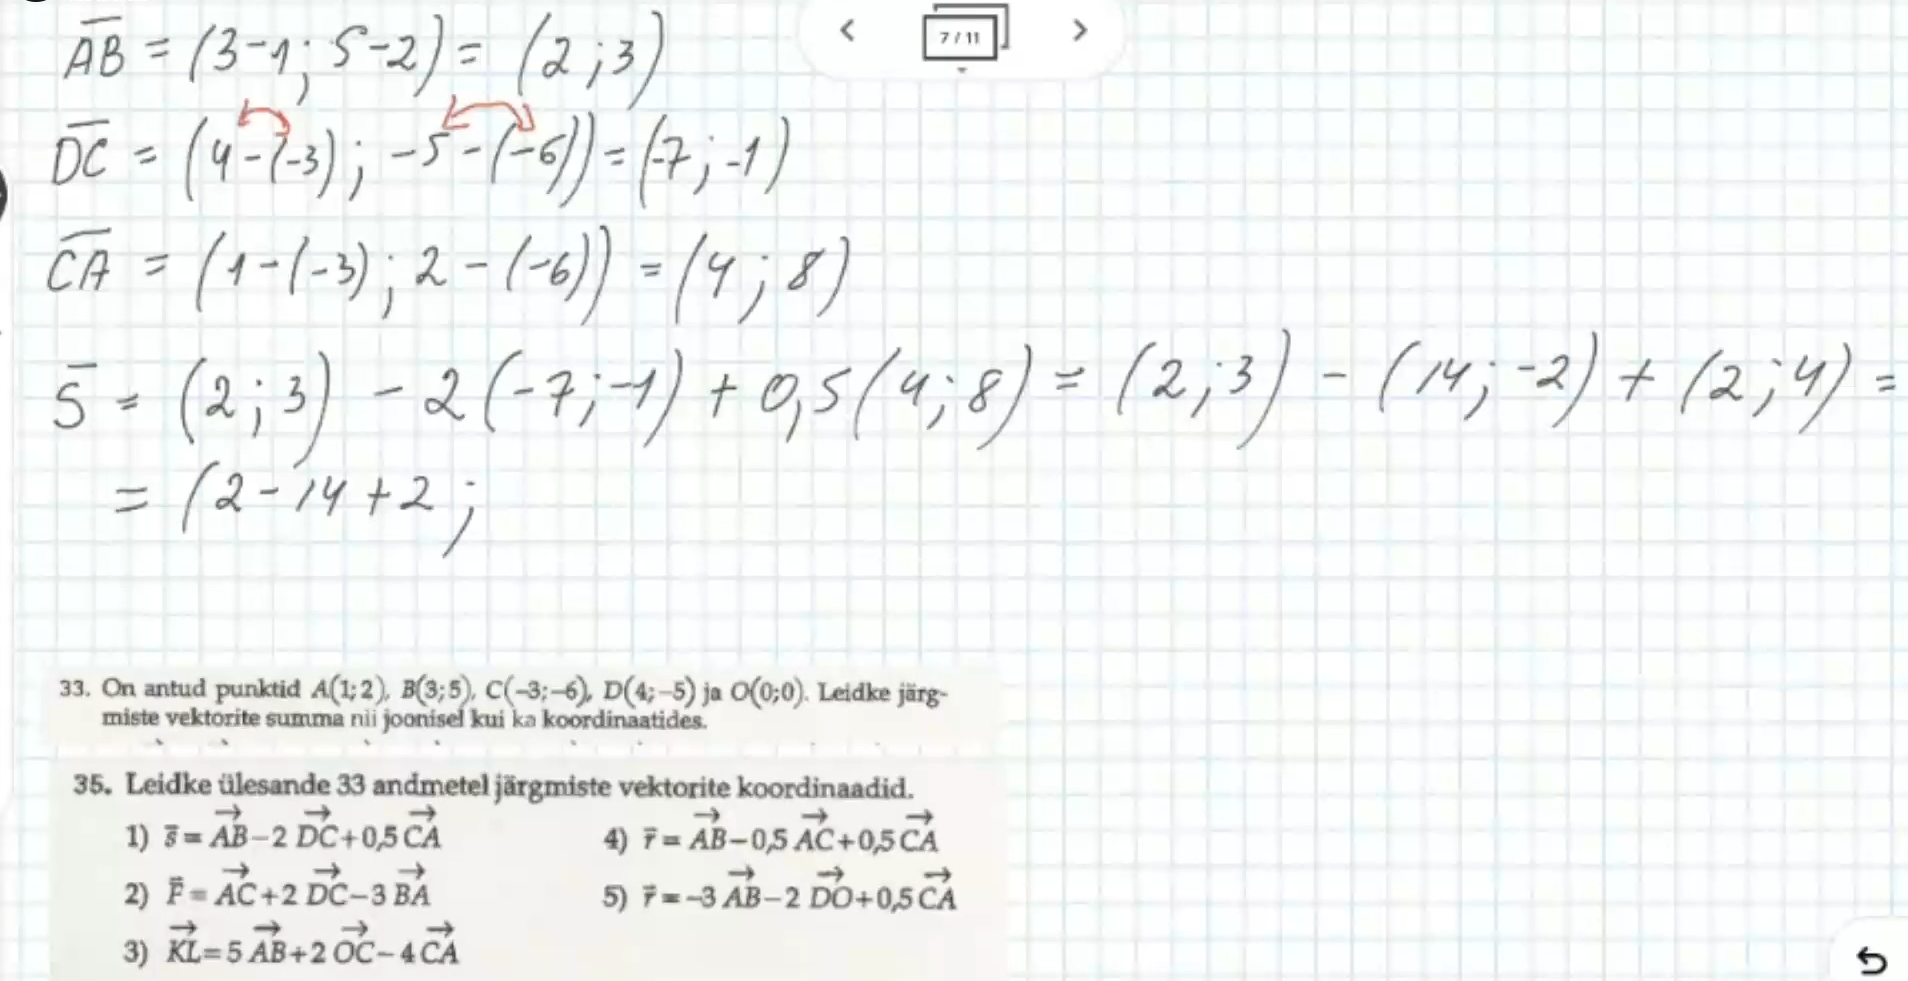 7/11
AB = (3-1; 5-2) = (2;3)
DC = (4-(-3); -5-(-6)) = (-7;-1)
CA = (1-(-3); 2-(-6)) = (4;8)
S = (2;3) - 2(-7;-1) + 0,5(4;8) = (2;3) - (14;-2) + (2;4) =
= (2-14+2;
33. On antud punktid A(1;2), B(3;5), C(-3;-6), D(4;-5) ja O(0;0). Leidke järg-
miste vektorite summa nii joonisel kui ka koordinaatides.
35. Leidke ülesande 33 andmetel järgmiste vektorite koordinaadid.
1) s̄ = AB - 2 DC + 0,5 CA
2) F̄ = AC + 2 DC - 3 BA
3) KL = 5 AB + 2 OC - 4 CA
4) r̄ = AB - 0,5 AC + 0,5 CA
5) r̄ = -3 AB - 2 DO + 0,5 CA